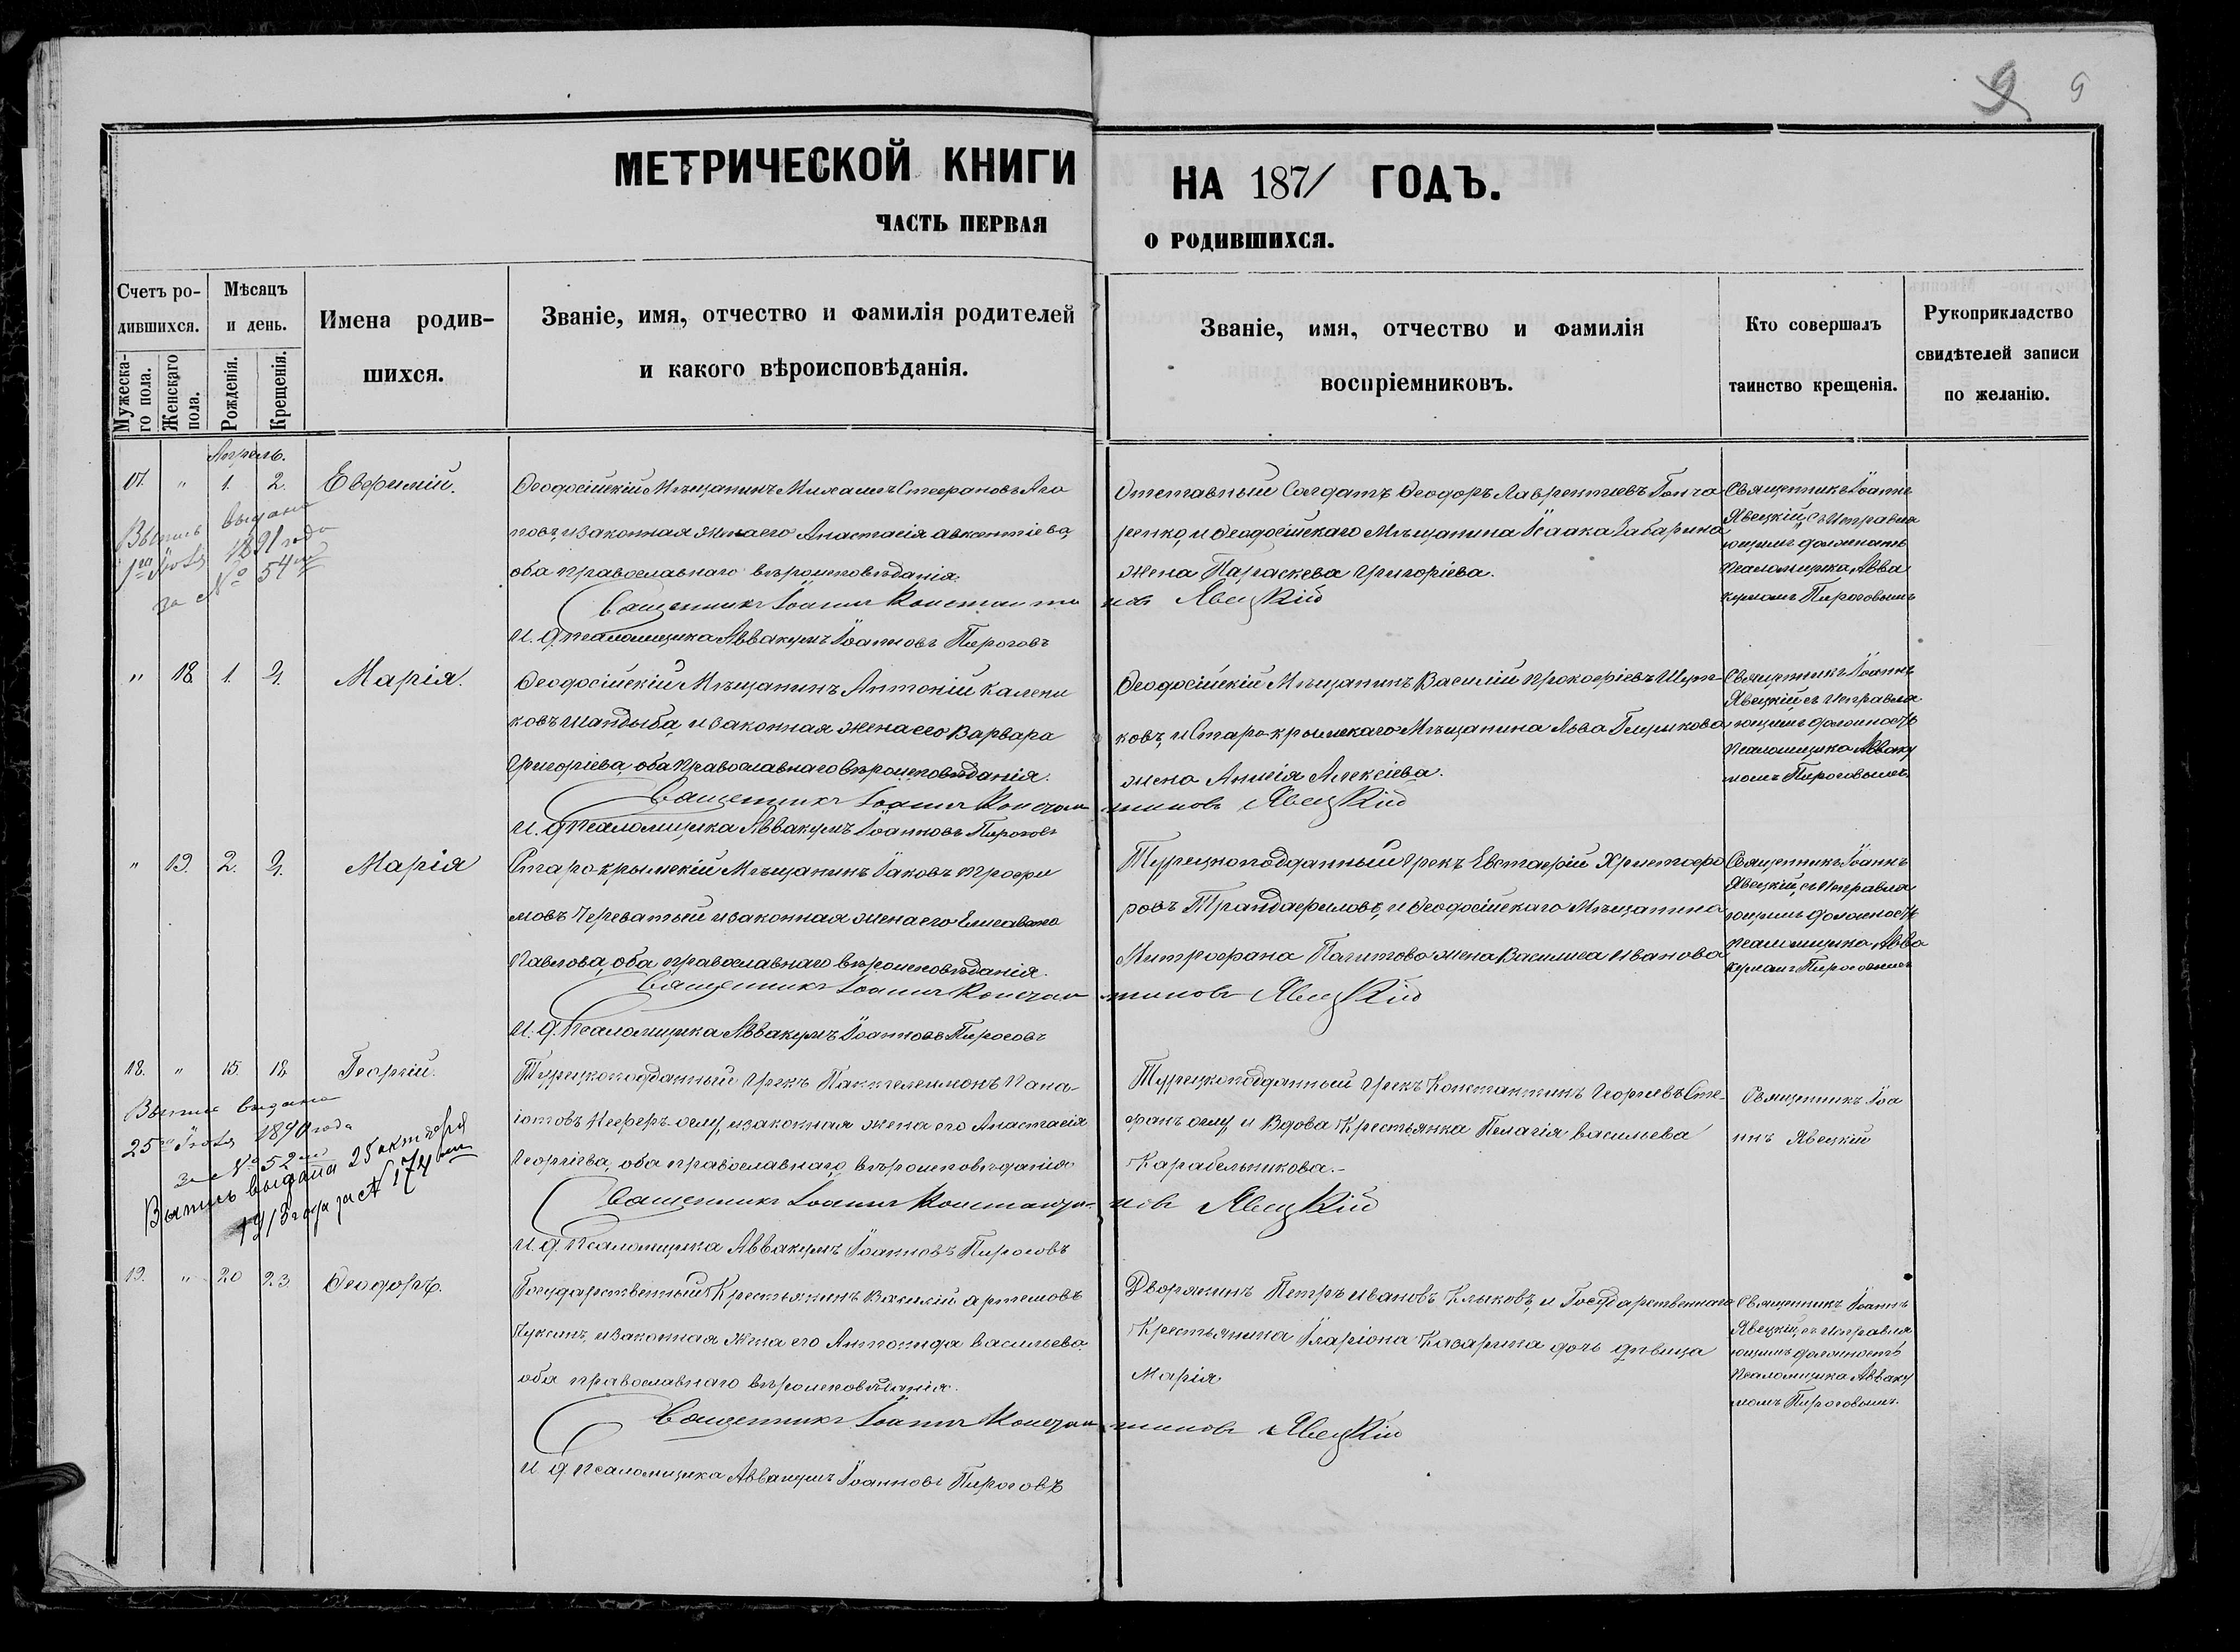 9 9
МЕТРИЧЕСКОЙ КНИГИ НА 1871 ГОДЪ.
ЧАСТЬ ПЕРВАЯ О РОДИВШИХСЯ.
Счетъ ро-
дившихся.
Мужеска-
го пола.
Женскаго
пола.
Мѣсяцъ
и день.
Рожденія.
Крещенія.
Имена родив-
шихся.
Званіе, имя, отчество и фамилія родителей
и какого вѣроисповѣданія.
Званіе, имя, отчество и фамилія
воспріемниковъ.
Кто совершалъ
таинство крещенія.
Рукоприкладство
свидѣтелей записи
по желанію.
Апрель.
17. " 1. 2. Евфимій.
Выпись выдана
1891 года
за № 54
Ѳеодосійскій Мѣщанинъ Михаилъ Стефановъ
повъ, и законная жена его Анастасія
оба православнаго вѣроисповѣданія.
Священникъ Іоаннъ Константи новъ Явецкій
И. д. псаломщика Аввакумъ Іоанновъ Пироговъ
Отставный Солдатъ Ѳеодоръ Лаврентіевъ Гонча
ренко, и Ѳеодосійскаго Мѣщанина Исаака
жена Параскева Григоріева.
Священникъ Іоаннъ
Явецкій, съ исправля
ющимъ должность
псаломщика Авва
кумомъ Пироговымъ
" 18. 1. Марія.
Ѳеодосійскій Мѣщанинъ Антоній
ковъ Шандыба, и законная жена его Варвара
Григоріева, оба православнаго вѣроисповѣданія.
Священникъ Іоаннъ Констан тиновъ Явецкій
И. д. псаломщика Аввакумъ Іоанновъ Пироговъ
Ѳеодосійскій Мѣщанинъ Василій Прокофіевъ
ковъ, и Старо-крымскаго Мѣщанина Льва
жена Анисія Алексіева.
Священникъ Іоаннъ
Явецкій съ исправля
ющимъ должность
псаломщика Авваку
момъ Пироговымъ
" 19. 2. Марія
Старо-крымскій Мѣщанинъ Іаковъ Трофи
мовъ Череватый и законная жена его Елисавета
Павлова, оба православнаго вѣроисповѣданія.
Священникъ Іоаннъ Констан тиновъ Явецкій
И. д. Псаломщика Аввакумъ Іоанновъ Пироговъ
Турецкоподданный Грекъ Евстафій Христофо
ровъ Трандафиловъ, и Ѳеодосійскаго Мѣщанина
Митрофана жена Василиса Иванова
Священникъ Іоаннъ
Явецкій, съ исправля
ющимъ должность
псаломщика Авва
кумомъ Пироговымъ
18. " 15. 18. Георгій.
Выпись выдана
25 1890 года
за № 52
Выпись выдана 25 октября
1913 года за № 174
Турецкоподданный Грекъ Пантелеимонъ Пана-
іотовъ оглу, и законная жена его Анастасія
Георгіева, оба православнаго вѣроисповѣданія
Священникъ Іоаннъ Константи- новъ Явецкій
И. д. Псаломщика Аввакумъ Іоанновъ Пироговъ
Турецкоподданный Грекъ Константинъ Георгіевъ Сте-
фанъ оглу, и Вдова Крестьянка Пелагія Васильева
Карабельникова.-
Священникъ Іоа
ннъ Явецкій
19. " 20 23. Ѳеодоръ.
Государственный Крестьянинъ Василій Артемовъ
и законная жена его Антонида Васильева
оба православнаго вѣроисповѣданія.
Священникъ Іоаннъ Констан тиновъ Явецкій
И д псаломщика Аввакумъ Іоанновъ Пироговъ
Дворянинъ Петръ Ивановъ Клыковъ, и Государственнаго
Крестьянина Иларіона Казарина дочь дѣвица
Марія
Священникъ Іоаннъ
Явецкій, съ исправля
ющимъ должность
Псаломщика Авваку
момъ Пироговымъ.